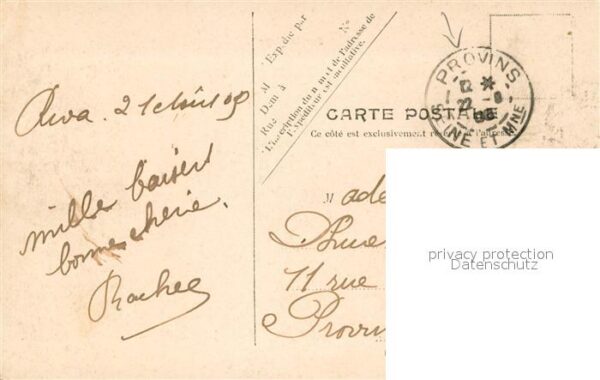 21 août 08
mille baisers
bonne chérie.
Rachel
M
Expédié par
M
Dom à
Rue
No
L'inscription du nom et de l'adresse de
l'Expéditeur est facultative.
PROVINS
12 *
22 - 8
08
SEINE ET MNE
CARTE POSTALE
Ce côté est exclusivement à l'adresse
Made
11 rue
Provin
privacy protection
Datenschutz